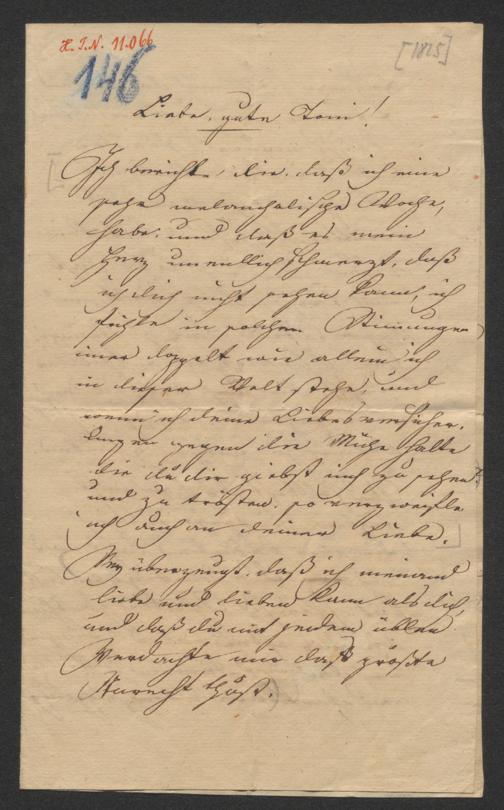 H. I. N. 11.066
[1825]
146
Liebe, gute Toni!
Ich berichte dir, daß ich eine
sehr melancholische Woche,
habe, und daß es mein
Herz unendlich schmerzt, daß
ich dich nicht sehen kann, ich
fühle in solchen Stimmungen
imer doppelt wie allein ich
in dieser Welt stehe, und
wenn ich deine Liebesversicher,
ungen gegen die Mühe halte
die du dir giebst mich zu sehen
und zu trösten, so verzweifle
ich auch an deiner Liebe.
Sey überzeugt, daß ich niemand
liebe und lieben kann als dich,
und daß du mit jedem üblen
Verdachte mir das größte
Unrecht thust.